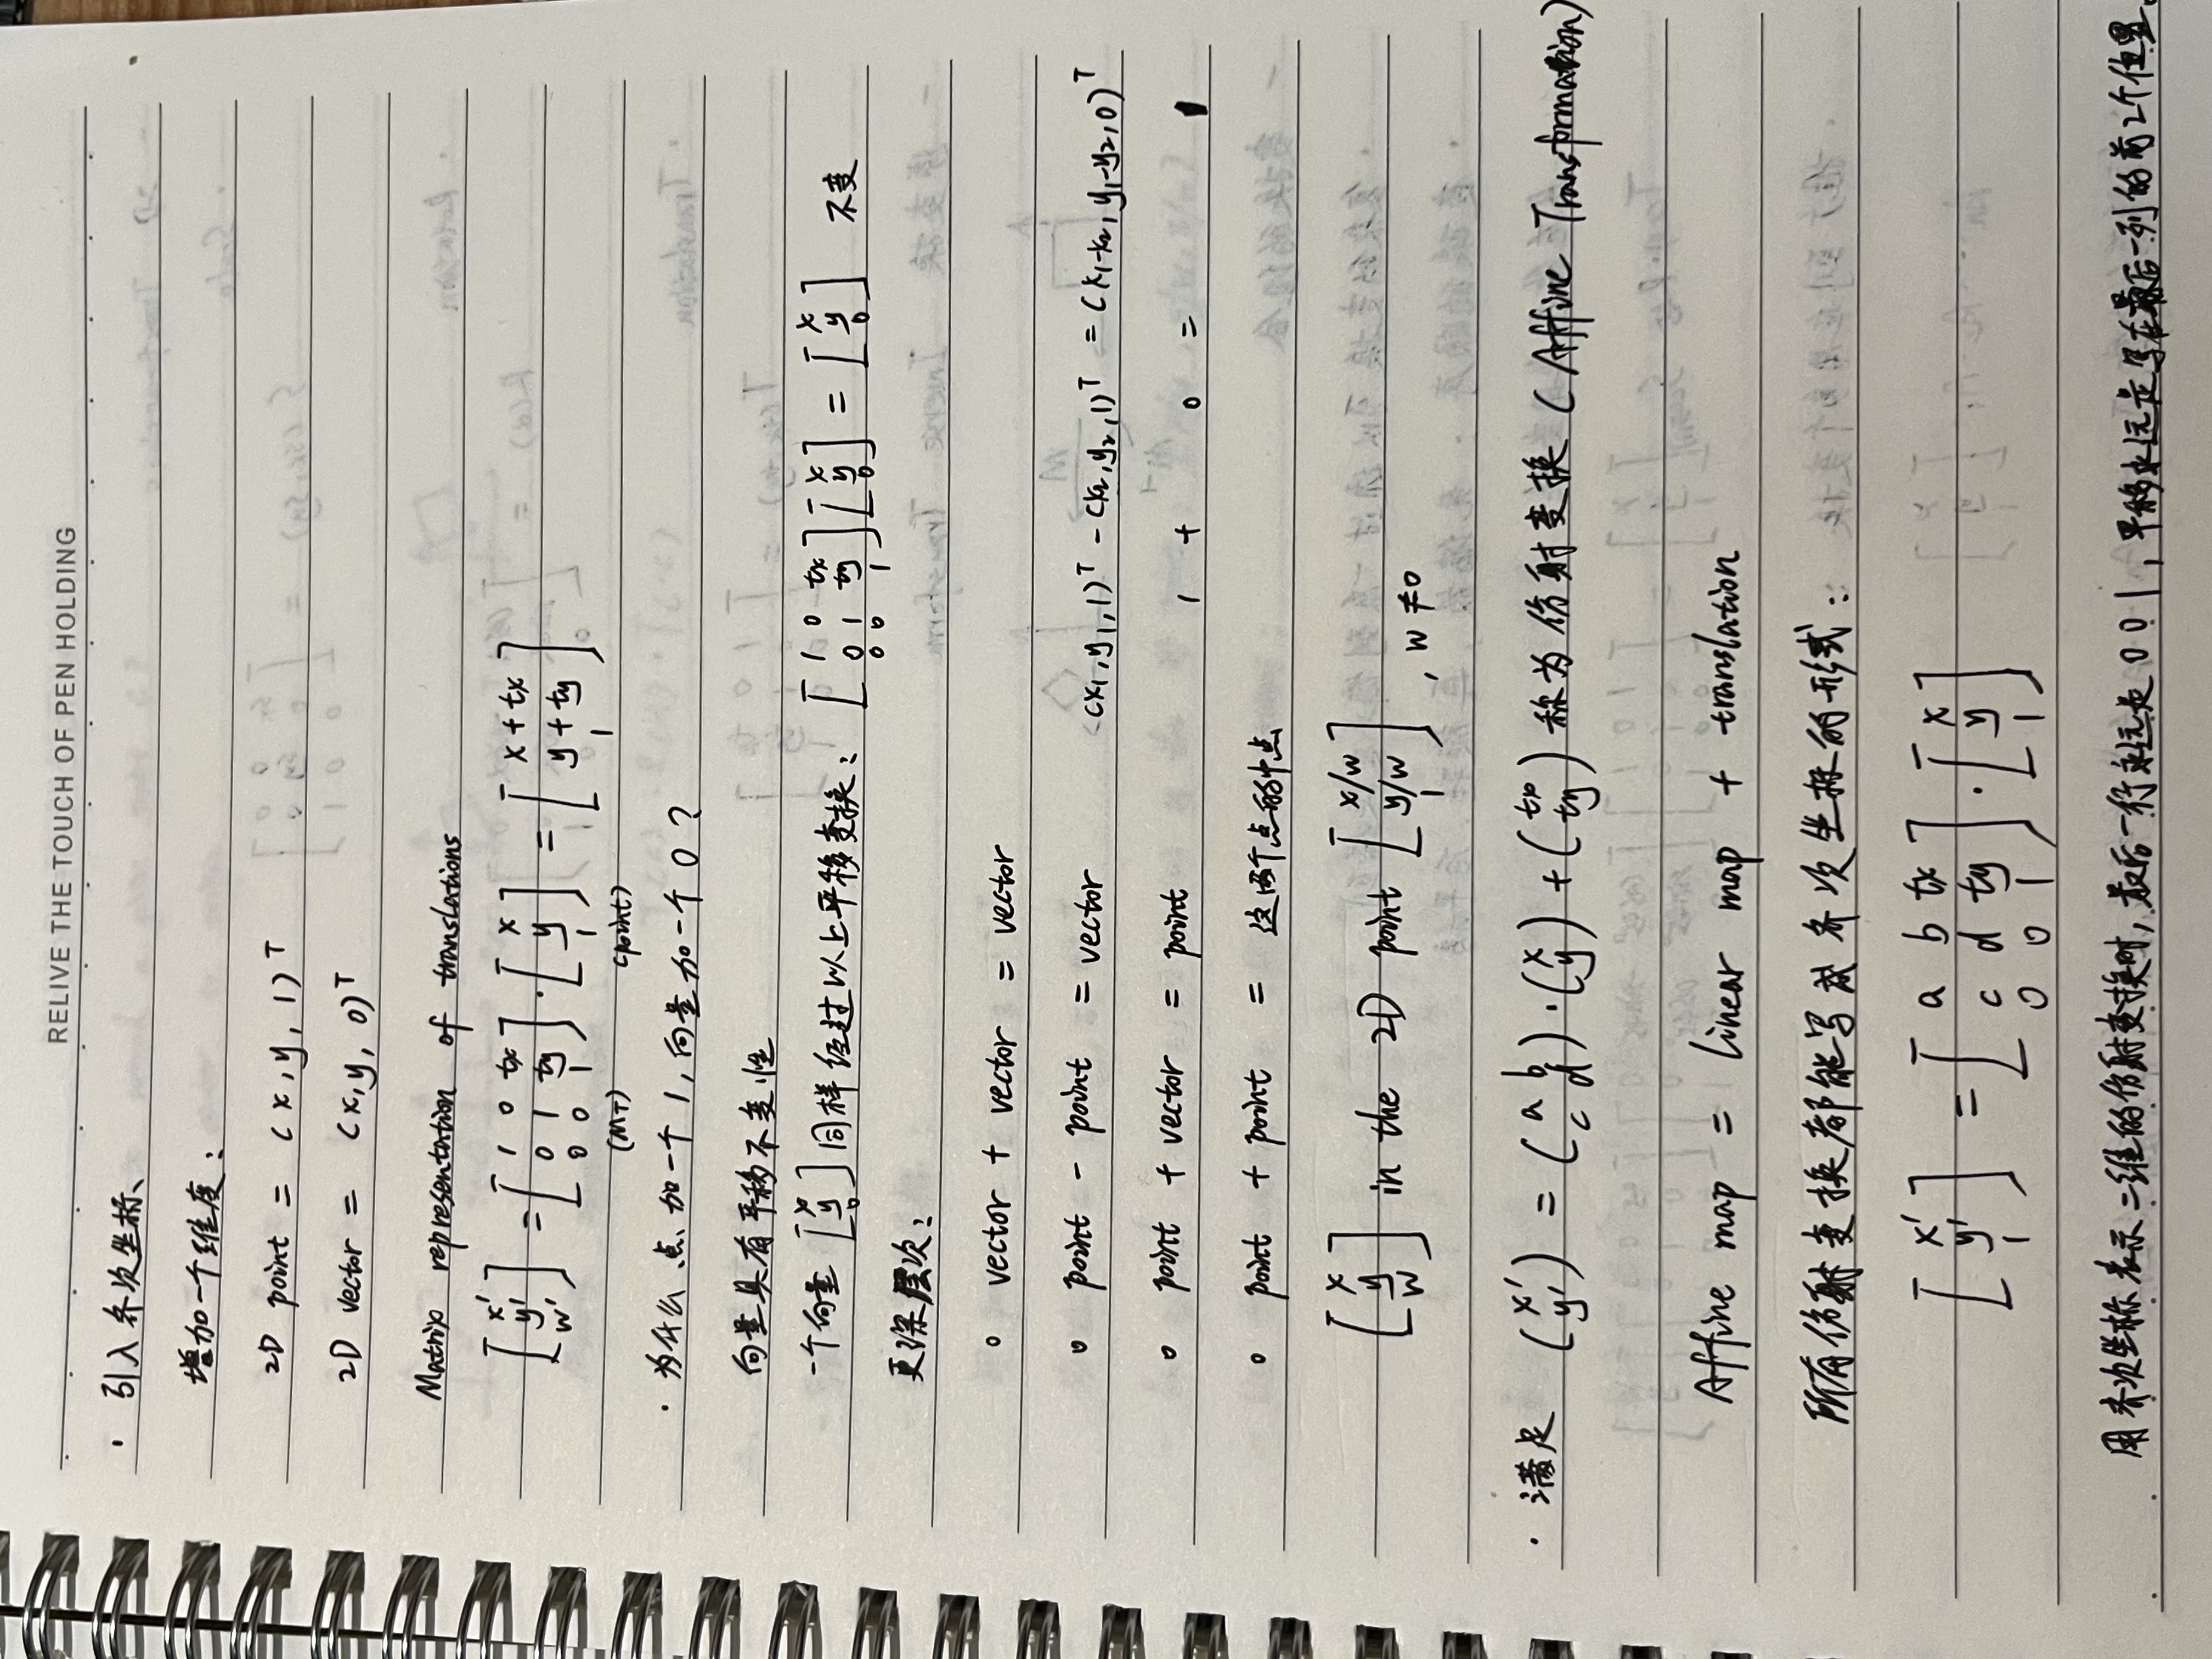 RELIVE THE TOUCH OF PEN HOLDING
· 引入齐次坐标、
增加一个维度：
2D point = (x, y, 1)ᵀ
2D vector = (x, y, 0)ᵀ
Matrix representation of translations
[x' y' w'] = [1 0 tx; 0 1 ty; 0 0 1] · [x y 1] = [x+tx y+ty 1]
(MT) (point)
· 为什么点加一个1, 向量加一个0?
向量具有平移不变性
一个向量 [x y 0] 同样经过以上平移变换: [1 0 tx; 0 1 ty; 0 0 1] [x y 0] = [x y 0] 不变
更深层次:
○ vector + vector = vector
○ point - point = vector (x₁,y₁,1)ᵀ - (x₂,y₂,1)ᵀ = (x₁-x₂, y₁-y₂, 0)ᵀ
○ point + vector = point 1 + 0 = 1
○ point + point = 这两个点的中点
[x y w] in the 2D point [x/w y/w 1], w≠0
· 满足 (x' y') = (a b; c d) · (x y) + (tx ty) 称为仿射变换 (Affine Transformation)
Affine map = linear map + translation
所有仿射变换都能写成齐次坐标的形式:
[x' y' 1] = [a b tx; c d ty; 0 0 1] · [x y 1]
用齐次坐标表示二维的仿射变换时, 最后一行永远是 0 0 1, 平移永远是写在最后一列的前2个位置。